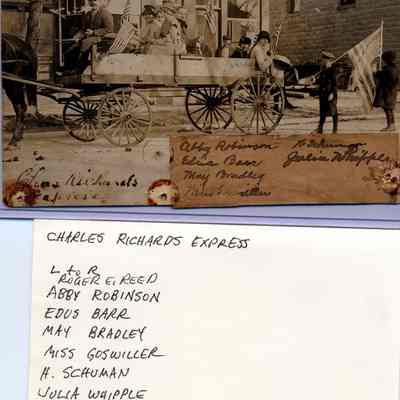 Abby Robinson
Edus Barr
May Bradley
Miss Goswiller
H. Schuman
Julia Whipple
Chas Richards
Express
CHARLES RICHARDS EXPRESS
L to R
ROGER E. REED
ABBY ROBINSON
EDUS BARR
MAY BRADLEY
MISS GOSWILLER
H. SCHUMAN
JULIA WHIPPLE